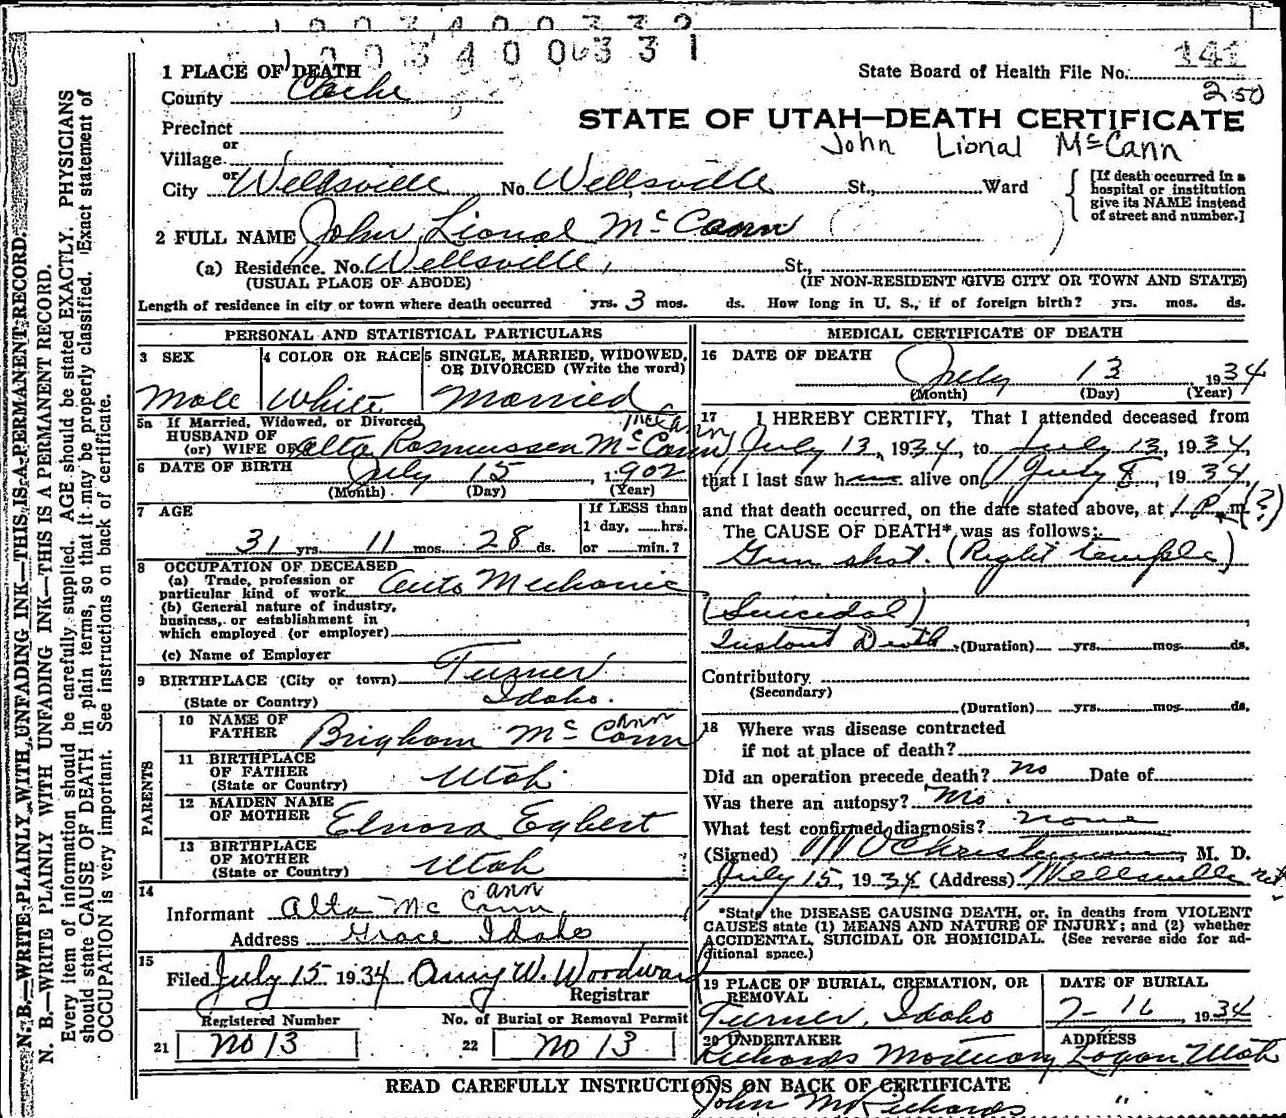 1003400332
1003400331
141
1 PLACE OF DEATH
State Board of Health File No.
County Cache
250
STATE OF UTAH—DEATH CERTIFICATE
Precinct
or
John Lional McCann
Village
or
City Wellsville No. Wellsville St., Ward
[If death occurred in a
hospital or institution
give its NAME instead
of street and number.]
2 FULL NAME John Lional McCann
(a) Residence. No. Wellsville, St.,
(USUAL PLACE OF ABODE) (IF NON-RESIDENT GIVE CITY OR TOWN AND STATE)
Length of residence in city or town where death occurred yrs. 3 mos. ds. How long in U. S., if of foreign birth? yrs. mos. ds.
PERSONAL AND STATISTICAL PARTICULARS
3 SEX 4 COLOR OR RACE 5 SINGLE, MARRIED, WIDOWED,
OR DIVORCED (Write the word)
Male White Married
5a If Married, Widowed, or Divorced McCann
HUSBAND OF
(or) WIFE OF Alta Rasmussen McCann
6 DATE OF BIRTH July 15, 1902
(Month) (Day) (Year)
7 AGE If LESS than
1 day, hrs.
31 yrs. 11 mos. 28 ds. or min.?
8 OCCUPATION OF DECEASED
(a) Trade, profession or
particular kind of work Auto Mechanic
(b) General nature of industry,
business, or establishment in
which employed (or employer)
(c) Name of Employer
9 BIRTHPLACE (City or town) Turner
(State or Country) Idaho.
PARENTS
10 NAME OF
FATHER Brigham McCann ann
11 BIRTHPLACE
OF FATHER Utah
(State or Country)
12 MAIDEN NAME
OF MOTHER Elnora Egbert
13 BIRTHPLACE
OF MOTHER Utah
(State or Country)
14 ann
Informant Alta McCann
Address Grace Idaho
15
Filed July 15 1934 Amy W. Woodward
Registrar
Registered Number No. of Burial or Removal Permit
21 No 13 22 No 13
MEDICAL CERTIFICATE OF DEATH
16 DATE OF DEATH
July 13 1934
(Month) (Day) (Year)
17 I HEREBY CERTIFY, That I attended deceased from
July 13, 1934, to July 13, 1934,
that I last saw h alive on July 8, 1934,
and that death occurred, on the date stated above, at 1 P. m. (?)
The CAUSE OF DEATH* was as follows:
Gun shot. (Right temple)
(Suicidal)
Instant Death (Duration) yrs. mos. ds.
Contributory
(Secondary)
(Duration) yrs. mos. ds.
18 Where was disease contracted
if not at place of death?
Did an operation precede death? no Date of
Was there an autopsy? No.
What test confirmed diagnosis? none
(Signed) Christensen, M. D.
July 15, 1934 (Address) Wellsville Ut
*State the DISEASE CAUSING DEATH, or, in deaths from VIOLENT
CAUSES state (1) MEANS AND NATURE OF INJURY; and (2) whether
ACCIDENTAL, SUICIDAL OR HOMICIDAL. (See reverse side for ad-
ditional space.)
19 PLACE OF BURIAL, CREMATION, OR
REMOVAL
DATE OF BURIAL
Turner, Idaho 7-16, 1934
20 UNDERTAKER ADDRESS
Richards Mortuary Logan Utah
READ CAREFULLY INSTRUCTIONS ON BACK OF CERTIFICATE
John M Richards " "
N. B.—WRITE PLAINLY WITH UNFADING INK—THIS IS A PERMANENT RECORD.
N. B.—WRITE PLAINLY WITH UNFADING INK—THIS IS A PERMANENT RECORD.
Every item of information should be carefully supplied. AGE should be stated EXACTLY. PHYSICIANS
should state CAUSE OF DEATH in plain terms, so that it may be properly classified. Exact statement of
OCCUPATION is very important. See instructions on back of certificate.